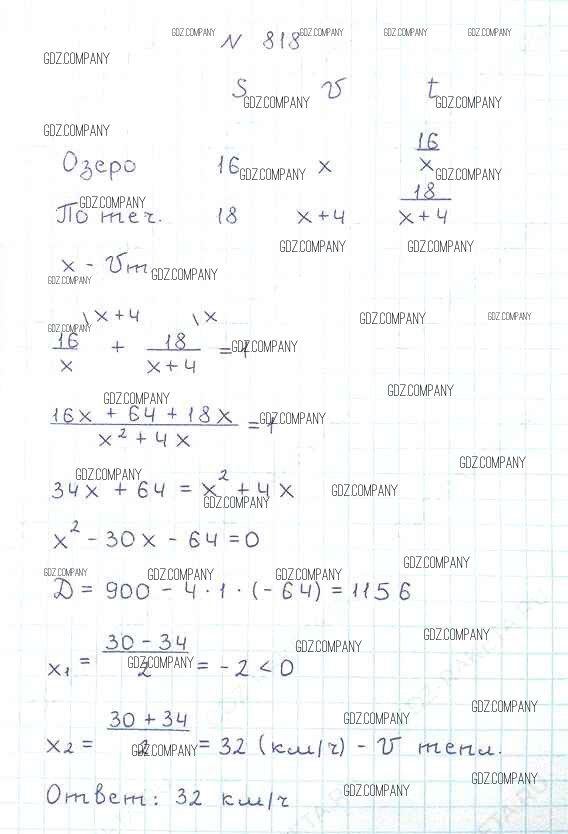 N 818
S v t
Озеро 16 x 16/x
По теч. 18 x+4 18/(x+4)
x - Vт
\x+4 \x
16/x + 18/(x+4) = 1
(16x + 64 + 18x)/(x² + 4x) = 1
34x + 64 = x² + 4x
x² - 30x - 64 = 0
D = 900 - 4 · 1 · (-64) = 1156
x₁ = (30 - 34)/2 = -2 < 0
x₂ = (30 + 34)/2 = 32 (км/ч) - V тепл.
Ответ: 32 км/ч
GDZ.COMPANY